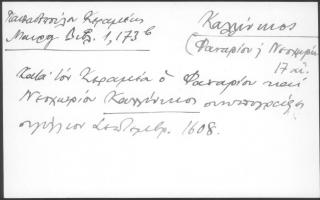 Παπαδοπούλου Κεραμέως
Μαυρ. Βιβλ. 1,173β
Καλλίνικος
(Φαναρίου & Νεοχωρίου
17 αἰ.
Κατὰ τὸν Κεραμέα ὁ Φαναρίου καὶ
Νεοχωρίου Καλλίνικος συνυπογράφει
σιγίλλιον Σεπτεμβρ. 1608.